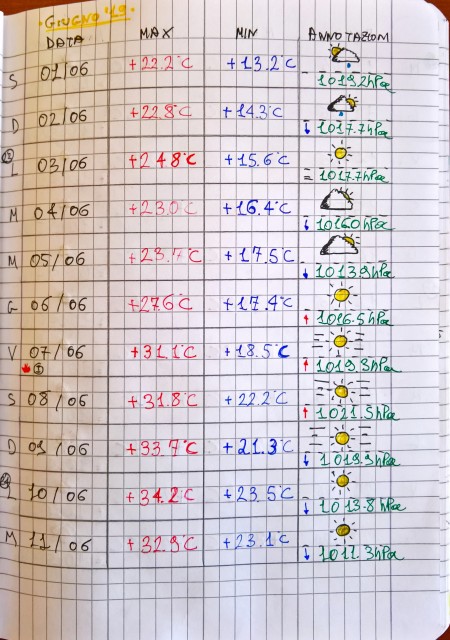 GIUGNO '19
DATA MAX MIN ANNOTAZIONI
S 01/06 +22.2°C +13.2°C - 1019.2hPa
D 02/06 +22.8°C +14.3°C ↓ 1017.7hPa
L 03/06 +24.8°C +15.6°C = 1017.7hPa
M 04/06 +23.0°C +16.4°C ↓ 1016.0hPa
M 05/06 +23.7°C +17.5°C ↓ 1013.9hPa
G 06/06 +27.6°C +17.4°C ↑ 1016.5hPa
V 07/06 +31.1°C +18.5°C ↑ 1019.3hPa
S 08/06 +31.8°C +22.2°C ↑ 1021.5hPa
D 09/06 +33.7°C +21.3°C ↓ 1019.9hPa
L 10/06 +34.2°C +23.5°C ↓ 1013.8hPa
M 11/06 +32.9°C +23.1°C ↓ 1011.3hPa